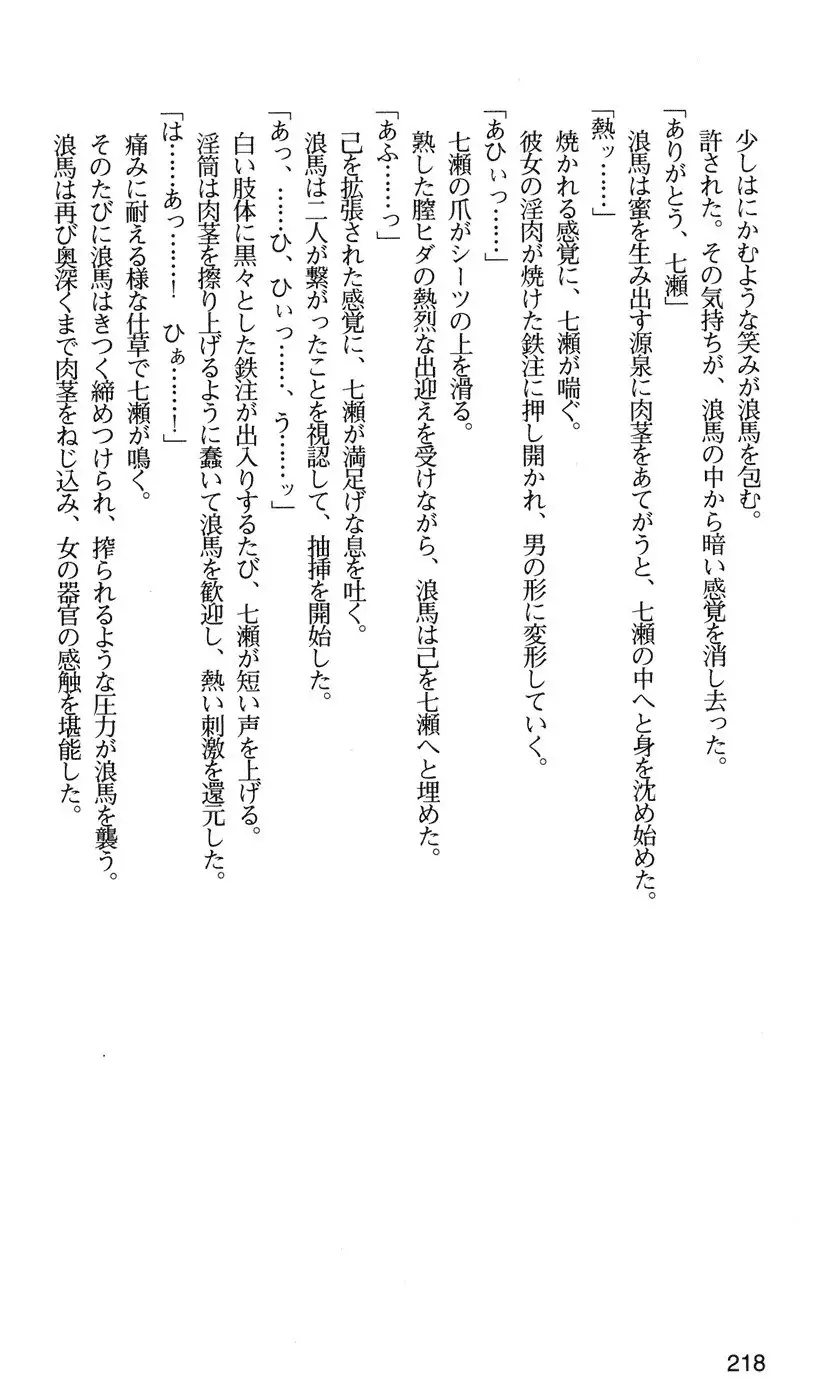 少しはにかむような笑みが浪馬を包む。
許された。その気持ちが、浪馬の中から暗い感覚を消し去った。
「ありがとう、七瀬」
浪馬は蜜を生み出す源泉に肉茎をあてがうと、七瀬の中へと身を沈め始めた。
「熱ッ……」
焼かれる感覚に、七瀬が喘ぐ。
彼女の淫肉が焼けた鉄注に押し開かれ、男の形に変形していく。
「あひぃっ……」
七瀬の爪がシーツの上を滑る。
熟した膣ヒダの熱烈な出迎えを受けながら、浪馬は己を七瀬へと埋めた。
「あふ……っ」
己を拡張された感覚に、七瀬が満足げな息を吐く。
浪馬は二人が繋がったことを視認して、抽挿を開始した。
「あっ、……ひ、ひぃっ……、う……ッ」
白い肢体に黒々とした鉄注が出入りするたび、七瀬が短い声を上げる。
淫筒は肉茎を擦り上げるように蠢いて浪馬を歓迎し、熱い刺激を還元した。
「は……あっ……！　ひぁ……！」
痛みに耐える様な仕草で七瀬が鳴く。
そのたびに浪馬はきつく締めつけられ、搾られるような圧力が浪馬を襲う。
浪馬は再び奥深くまで肉茎をねじ込み、女の器官の感触を堪能した。
218